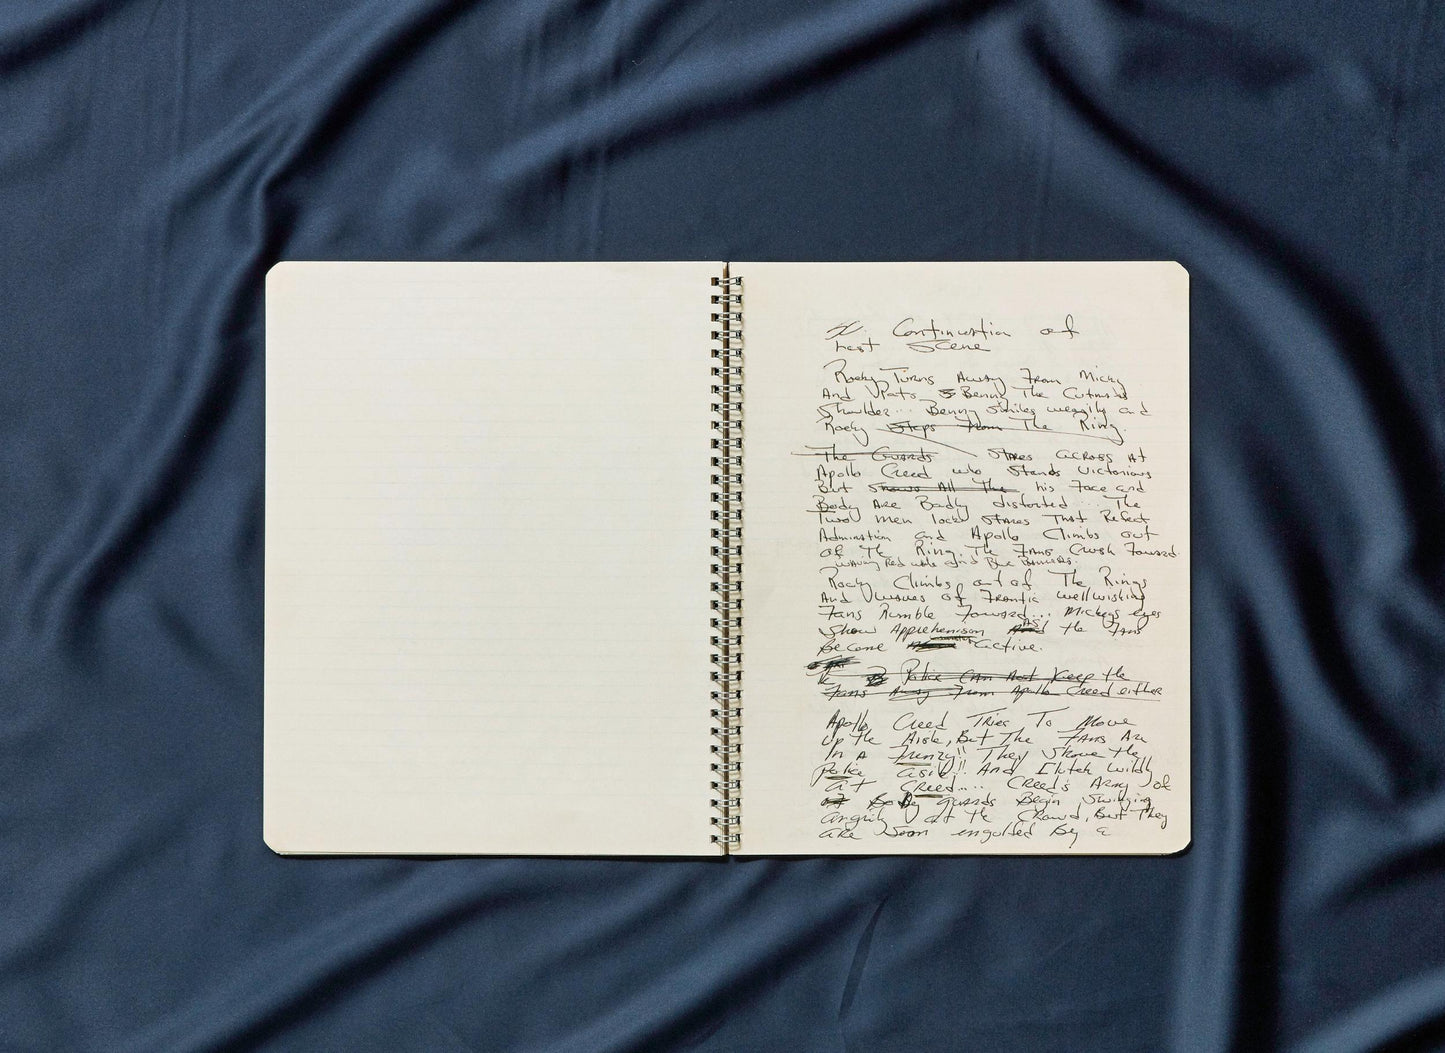 Continuation of
Last Scene
Rocky Turns Away From Micky
And Pats Benny The Cutman's
Shoulder... Benny smiles wearily and
Rocky Steps From The Ring.
The Guards stares across at
Apollo Creed who stands victorious
But Shows All The his Face and
Body Are Badly distorted... The
Two men lock stares That Reflect
Admiration and Apollo Climbs out
of The Ring. The Fans Crush Forward
waving Red white and Blue Banners.
Rocky Climbs out of The Rings
And waves of Frantic wellwishing
Fans Rumble Forward... Mickeys eyes
Show Apprehenison As the Fans
Become active.
Police Can Not Keep the
Fans Away From Apollo Creed either
Apollo Creed Tries To Move
Up the Aisle, But The Fans Are
In A Frenzy!! They Shove the
Police aside!! And Clutch wildly
at Creed.... Creed's Army of
Body guards Begin Swinging
angrily at the Crowd, But They
are Soon engulfed By a